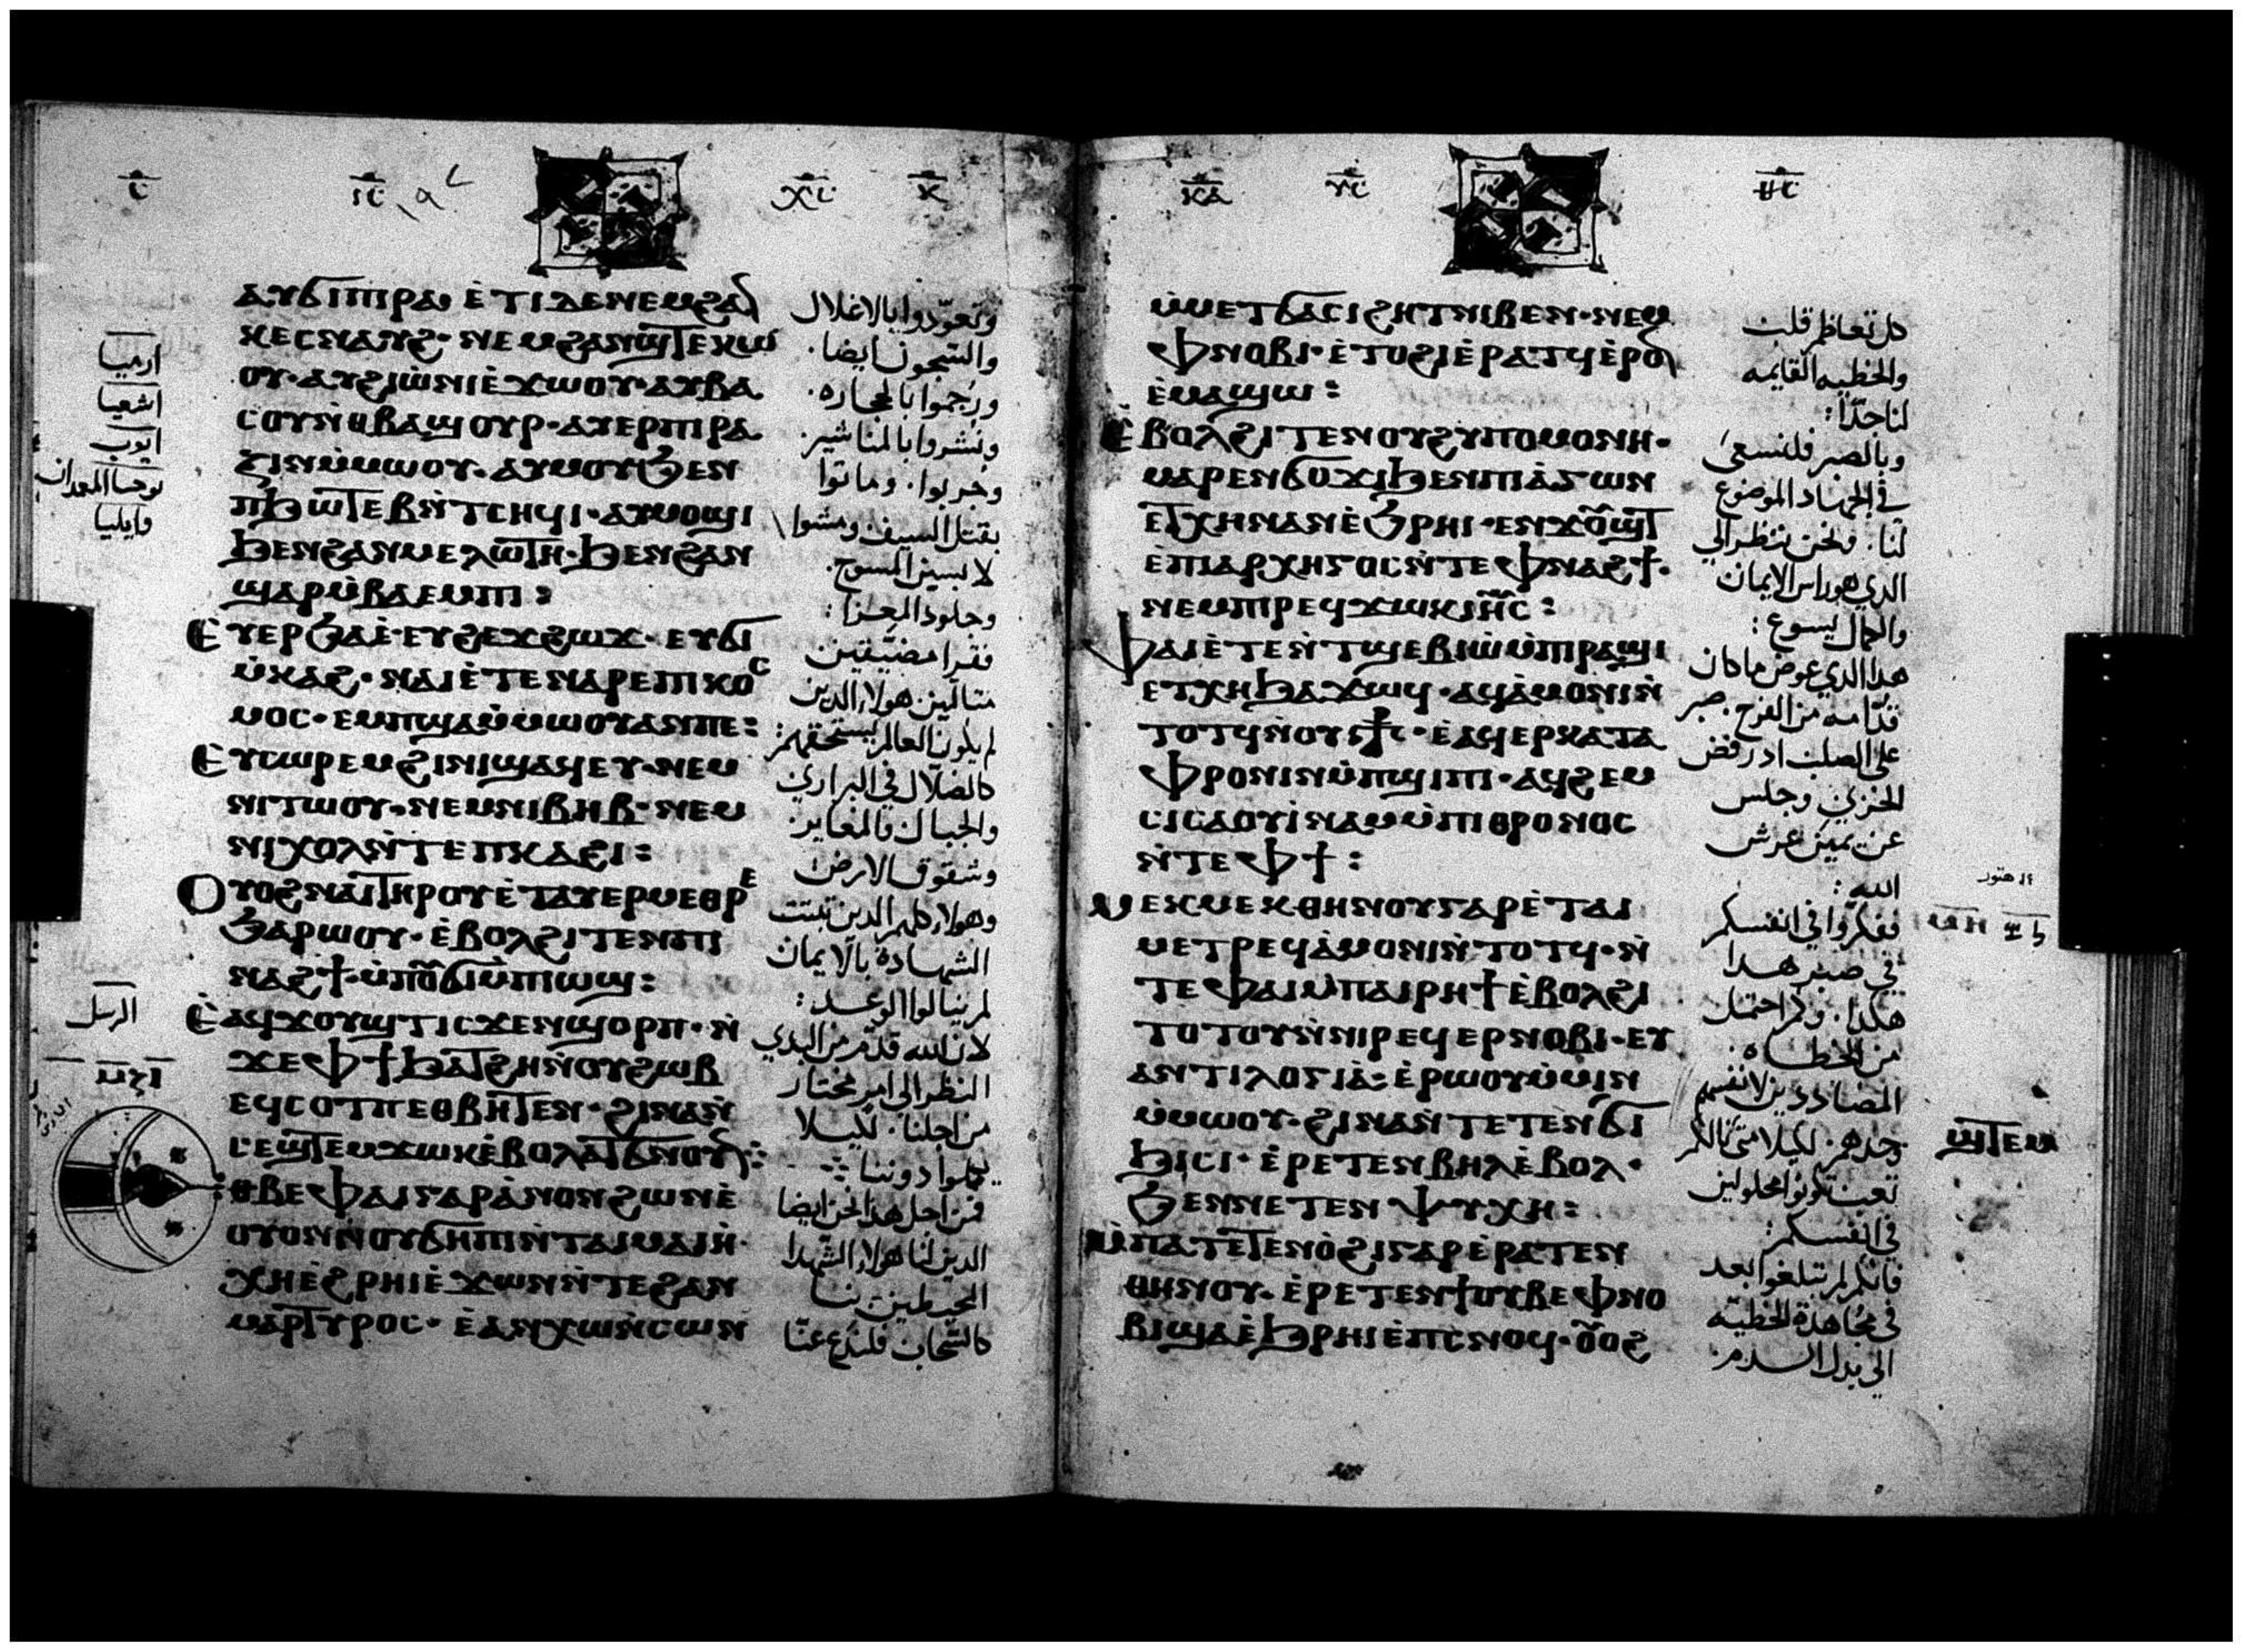 ⲁⲩϭⲓⲡⲓⲣⲁ ⲉⲧⲓⲇⲉⲛⲉⲙϩⲁⲛ
ⲕⲉⲥⲛⲁⲩϩ· ⲛⲉⲙϩⲁⲛϣⲧⲉⲕⲱ
ⲟⲩ· ⲁⲩϩⲓⲱⲛⲓⲉϫⲱⲟⲩ· ⲁⲩⲃⲁ
ⲥⲟⲩⲛⲑⲃⲁϣⲟⲩⲣ· ⲁⲩⲉⲣⲡⲓⲣⲁ
ⲍⲓⲛⲙⲙⲱⲟⲩ· ⲁⲩⲙⲟⲩϧⲉⲛ
ⲡϧⲱⲧⲉⲃⲛⲧⲥⲏϥⲓ· ⲁⲩⲙⲟϣⲓ
ϧⲉⲛϩⲁⲛⲙⲉⲗⲱⲧⲏ· ϧⲉⲛϩⲁⲛ
ϣⲁⲣⲙⲃⲁⲉⲙⲡⲓ:
ⲉⲩⲉⲣϧⲁⲉ· ⲉⲩϩⲉϫϩⲱϫ· ⲉⲩϭⲓ
ⲙⲕⲁϩ· ⲛⲁⲓⲉⲧⲉⲛⲁⲣⲉⲡⲓⲕⲟⲥ
ⲙⲟⲥ· ⲉⲙⲡϣⲁⲙⲙⲱⲟⲩⲁⲛⲡⲉ:
ⲉⲩⲥⲱⲣⲉⲙϩⲓⲛⲓϣⲁϥⲉⲩ· ⲛⲉⲙ
ⲛⲓⲧⲱⲟⲩ· ⲛⲉⲙⲛⲓⲃⲏⲃ· ⲛⲉⲙ
ⲛⲓⲭⲟⲗⲛⲧⲉⲡⲕⲁϩⲓ:
ⲟⲩⲟϩⲛⲁⲓⲧⲏⲣⲟⲩⲉⲧⲁⲩⲉⲣⲙⲉⲑⲣⲉ
ϧⲁⲣⲱⲟⲩ· ⲉⲃⲟⲗϩⲓⲧⲉⲛⲡⲓ
ⲛⲁϩϯ· ⲙⲡⲟⲩϭⲓⲙⲡⲓⲱϣ:
ⲉⲁϥϫⲟⲩϣⲧⲓⲥϫⲉⲛϣⲟⲣⲡ· ⲛ
ϫⲉⲫϯϧⲁⲧϩⲏⲛⲟⲩϩⲱⲃ
ⲉϥⲥⲟⲧⲡⲉⲑⲃⲏⲧⲉⲛ· ϩⲓⲛⲁⲛ
ⲥⲉϣⲧⲉⲙϫⲱⲕⲉⲃⲟⲗⲁⲧϭⲛⲟⲩⲛ:
ⲉⲑⲃⲉⲫⲁⲓⲅⲁⲣⲁⲛⲟⲛϩⲱⲛⲉ
ⲟⲩⲟⲛⲛⲟⲩϭⲏⲡⲓⲛⲧⲁⲓⲙⲁⲓⲏ·
ⲭⲏⲉϩⲣⲏⲓⲉϫⲱⲛⲛⲧⲉϩⲁⲛ
ⲙⲁⲣⲧⲩⲣⲟⲥ· ⲉⲁⲛⲭⲱⲛⲥⲱⲛ
وتعوّدوا بالاغلال
والسجون ايضا·
ورُجموا بالحجاره·
ونُشروا بالمناشير·
وجربوا· وماتوا
بقتل السيف ومشوا
لابسين المسوح·
وجلود المعزا:
فقرا مضيّقين
متالمين هولاء الدين
لم يكون العالم يستحقهم:
كالضلّال في البراري
والجبال والمغاير·
وشقوق الارض
وهولاء كلهم الدين تبتت
الشهادة بالايمان
لم ينالوا الوعد:
لان الله قدّم من البدي
النظر الى امر مختار
من اجلنا· لكيلا
يكملوا دوننا
فمن اجل هدا نحن ايضا
الدين لنا هولاء الشهدا
المحيطين بنا
كالسّحاب فلندع عنّا
ارميا
اشعيا
ايوب
يوحنا المعمدان
وايليا
الرسل
ⲙⲙⲉⲧϭⲁⲥⲓϩⲏⲧⲛⲓⲃⲉⲛ· ⲛⲉⲙ
ⲫⲛⲟⲃⲓ· ⲉⲧⲟϩⲓⲉⲣⲁⲧϥⲉⲣⲟⲛ
ⲉⲙⲁϣⲱ:
ⲉⲃⲟⲗϩⲓⲧⲉⲛⲟⲩϩⲩⲡⲟⲙⲟⲛⲏ·
ⲙⲁⲣⲉⲛϭⲟϫⲓϧⲉⲛⲡⲓⲁⲅⲱⲛ
ⲉⲧⲭⲏⲛⲁⲛⲉϧⲣⲏⲓ· ⲉⲛϫⲟⲩϣⲧ
ⲉⲡⲓⲁⲣⲭⲏⲅⲟⲥⲛⲧⲉⲫⲛⲁϩϯ·
ⲛⲉⲙⲡⲓⲣⲉϥϫⲱⲕⲓⲏⲥ:
ⲫⲁⲓⲉⲧⲉⲛⲧϣⲉⲃⲓⲱⲙⲡⲓⲣⲁϣⲓ
ⲉⲧⲭⲏϧⲁϫⲱϥ· ⲁϥⲁⲙⲟⲛⲓⲛ
ⲧⲟⲧϥⲛⲟⲩⲥⳁⲥ· ⲉⲁϥⲉⲣⲕⲁⲧⲁ
ⲫⲣⲟⲛⲓⲛⲙⲡϣⲓⲡⲓ· ⲁϥϩⲉⲙ
ⲥⲓⲥⲁⲟⲩⲓⲛⲁⲙⲙⲡⲓⲑⲣⲟⲛⲟⲥ
ⲛⲧⲉⲫϯ:
ⲙⲉⲕⲙⲉⲕⲑⲏⲛⲟⲩⲅⲁⲣⲉⲧⲁⲓ
ⲙⲉⲧⲣⲉϥⲁⲙⲟⲛⲓⲛⲧⲟⲧϥ· ⲛ
ⲧⲉⲫⲁⲓⲙⲡⲁⲓⲣⲏϯⲉⲃⲟⲗϩⲓ
ⲧⲟⲧⲟⲩⲛⲛⲓⲣⲉϥⲉⲣⲛⲟⲃⲓ· ⲉⲩ
ⲁⲛⲧⲓⲗⲟⲅⲓⲁ: ⲉⲣⲱⲟⲩⲙⲙⲓⲛ
ⲙⲙⲱⲟⲩ· ϩⲓⲛⲁⲛⲧⲉⲧⲉⲛϭⲓ
ϧⲓⲥⲓ· ⲉⲣⲉⲧⲉⲛⲃⲏⲗⲉⲃⲟⲗ·
ϧⲉⲛⲛⲉⲧⲉⲛⲯⲩⲭⲏ:
ⲙⲡⲁⲧⲉⲧⲉⲛⲟϩⲓⲅⲁⲣⲉⲣⲁⲧⲉⲛ
ⲑⲏⲛⲟⲩ· ⲉⲣⲉⲧⲉⲛϯⲟⲩⲃⲉⲫⲛⲟ
ⲃⲓϣⲁⲉϧⲣⲏⲓⲉⲡⲥⲛⲟϥ· ⲟⲩⲟϩ
كل تعاظم قلب
والخطيه القايمه
لنا جدّا:
وبالصبر فلنسعى
في الجهاد الموضوع
لنا· ونحن ننظر الى
الدي هو راس الايمان
والكمال يسوع:
هدا الدي عوض ما كان
قدّامه من الفرح· صبر
على الصلب اد رفض
الخزي· وجلس
عن يمين عرش
الله:
ففكروا في انفسكم
في صبر هدا
هكدا· وكم احتمل
من الخطاه·
المضاددين لانفسهم
وحدهم· لكيلا متى نالكم
تعب تكونوا محلولين
في انفسكم:
فانكم لم تبلغوا بعد
في مجاهدة الخطيّه
الى بدل الدم·
ϣⲧⲉⲙ